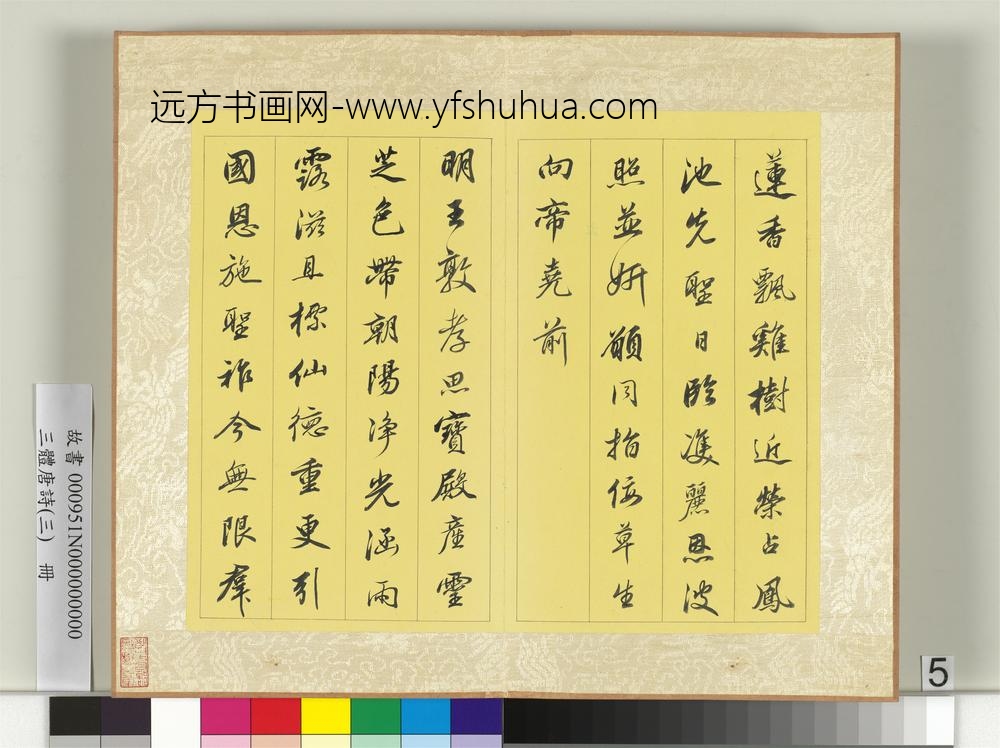 远方书画网-www.yfshuhua.com
蓮香飄雞樹近榮占鳳
池先聖日臨雙麗恩波
照並妍願同指佞草生
向帝堯前
明王敦孝思寶殿產靈
芝色帶朝陽淨光涵雨
露滋且標仙德重更引
國恩施聖祚今無限群
故書 000951N000000000
三體唐詩(三) 冊
5